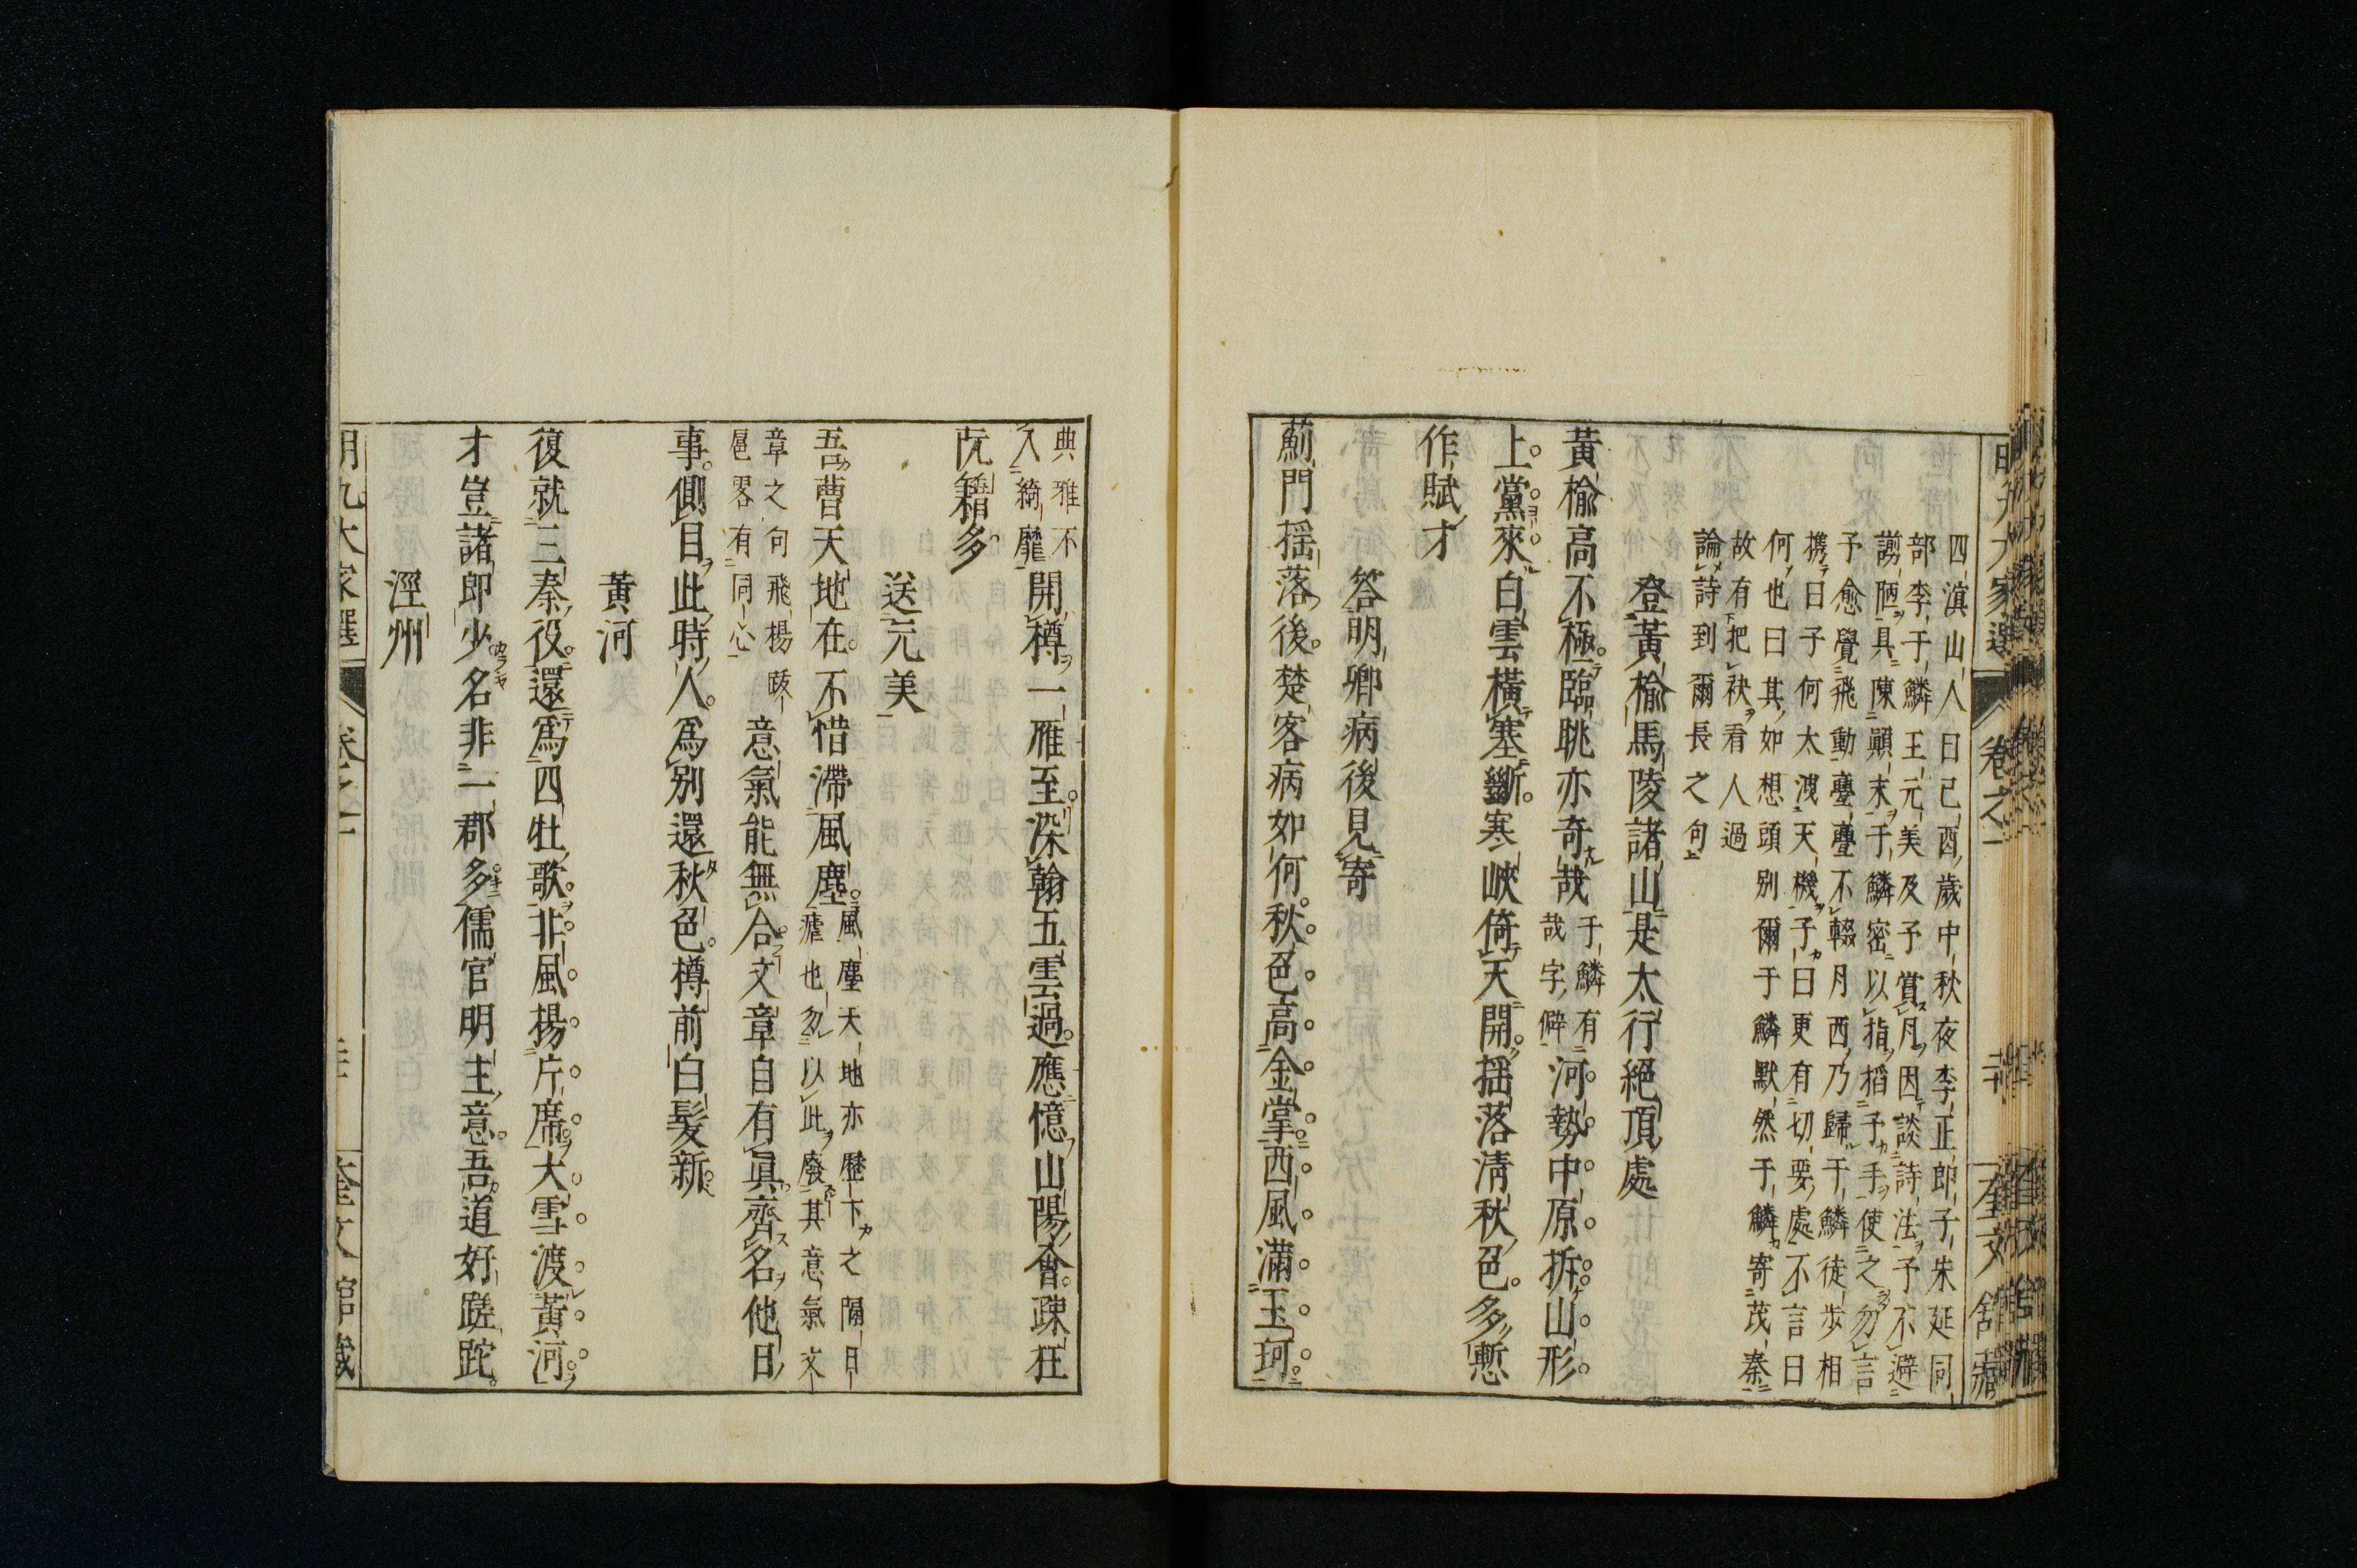 四滇山人曰己酉歲中秋夜李正郎子朱延同
部李于鱗王元美及予賞月因談詩法予不避
謭陋具陳顚末于鱗密以指搯予手使之勿言
予愈覺飛動亹亹不輟月西乃歸于鱗徒步相
携曰子何太洩天機子曰更有切要處不言曰
何也曰其如想頭别爾于鱗默然于鱗寄茂秦
故有把袂看人過
論詩到爾長之句
登黃楡馬陵諸山是太行絕頂處
黃楡高不極臨眺亦奇哉
于鱗有
哉字僻
河勢中原拆山形
上黨來白雲橫塞斷寒峽倚天開揺落淸秋色多慙
作賦才
答明卿病後見寄
薊門揺落後楚客病如何秋色高金掌西風滿玉珂
典雅不
入綺靡
開樽一雁至染翰五雲過應憶山陽會疎狂
阮籍多
送元美
吾曹天地在不惜滯風塵
風塵天地亦歷下之隔日
瘧也勿以此廢其意氣文
章之句飛楊跋
扈畧有同心
意氣能無合文章自有眞齊名他日
事側目此時人爲別還秋色樽前白髮新
黃河
復就三秦役還爲四牡歌非風楊片席大雪渡黃河
才豈諸郎少名非一郡多儒官明主意吾道好蹉跎
涇州